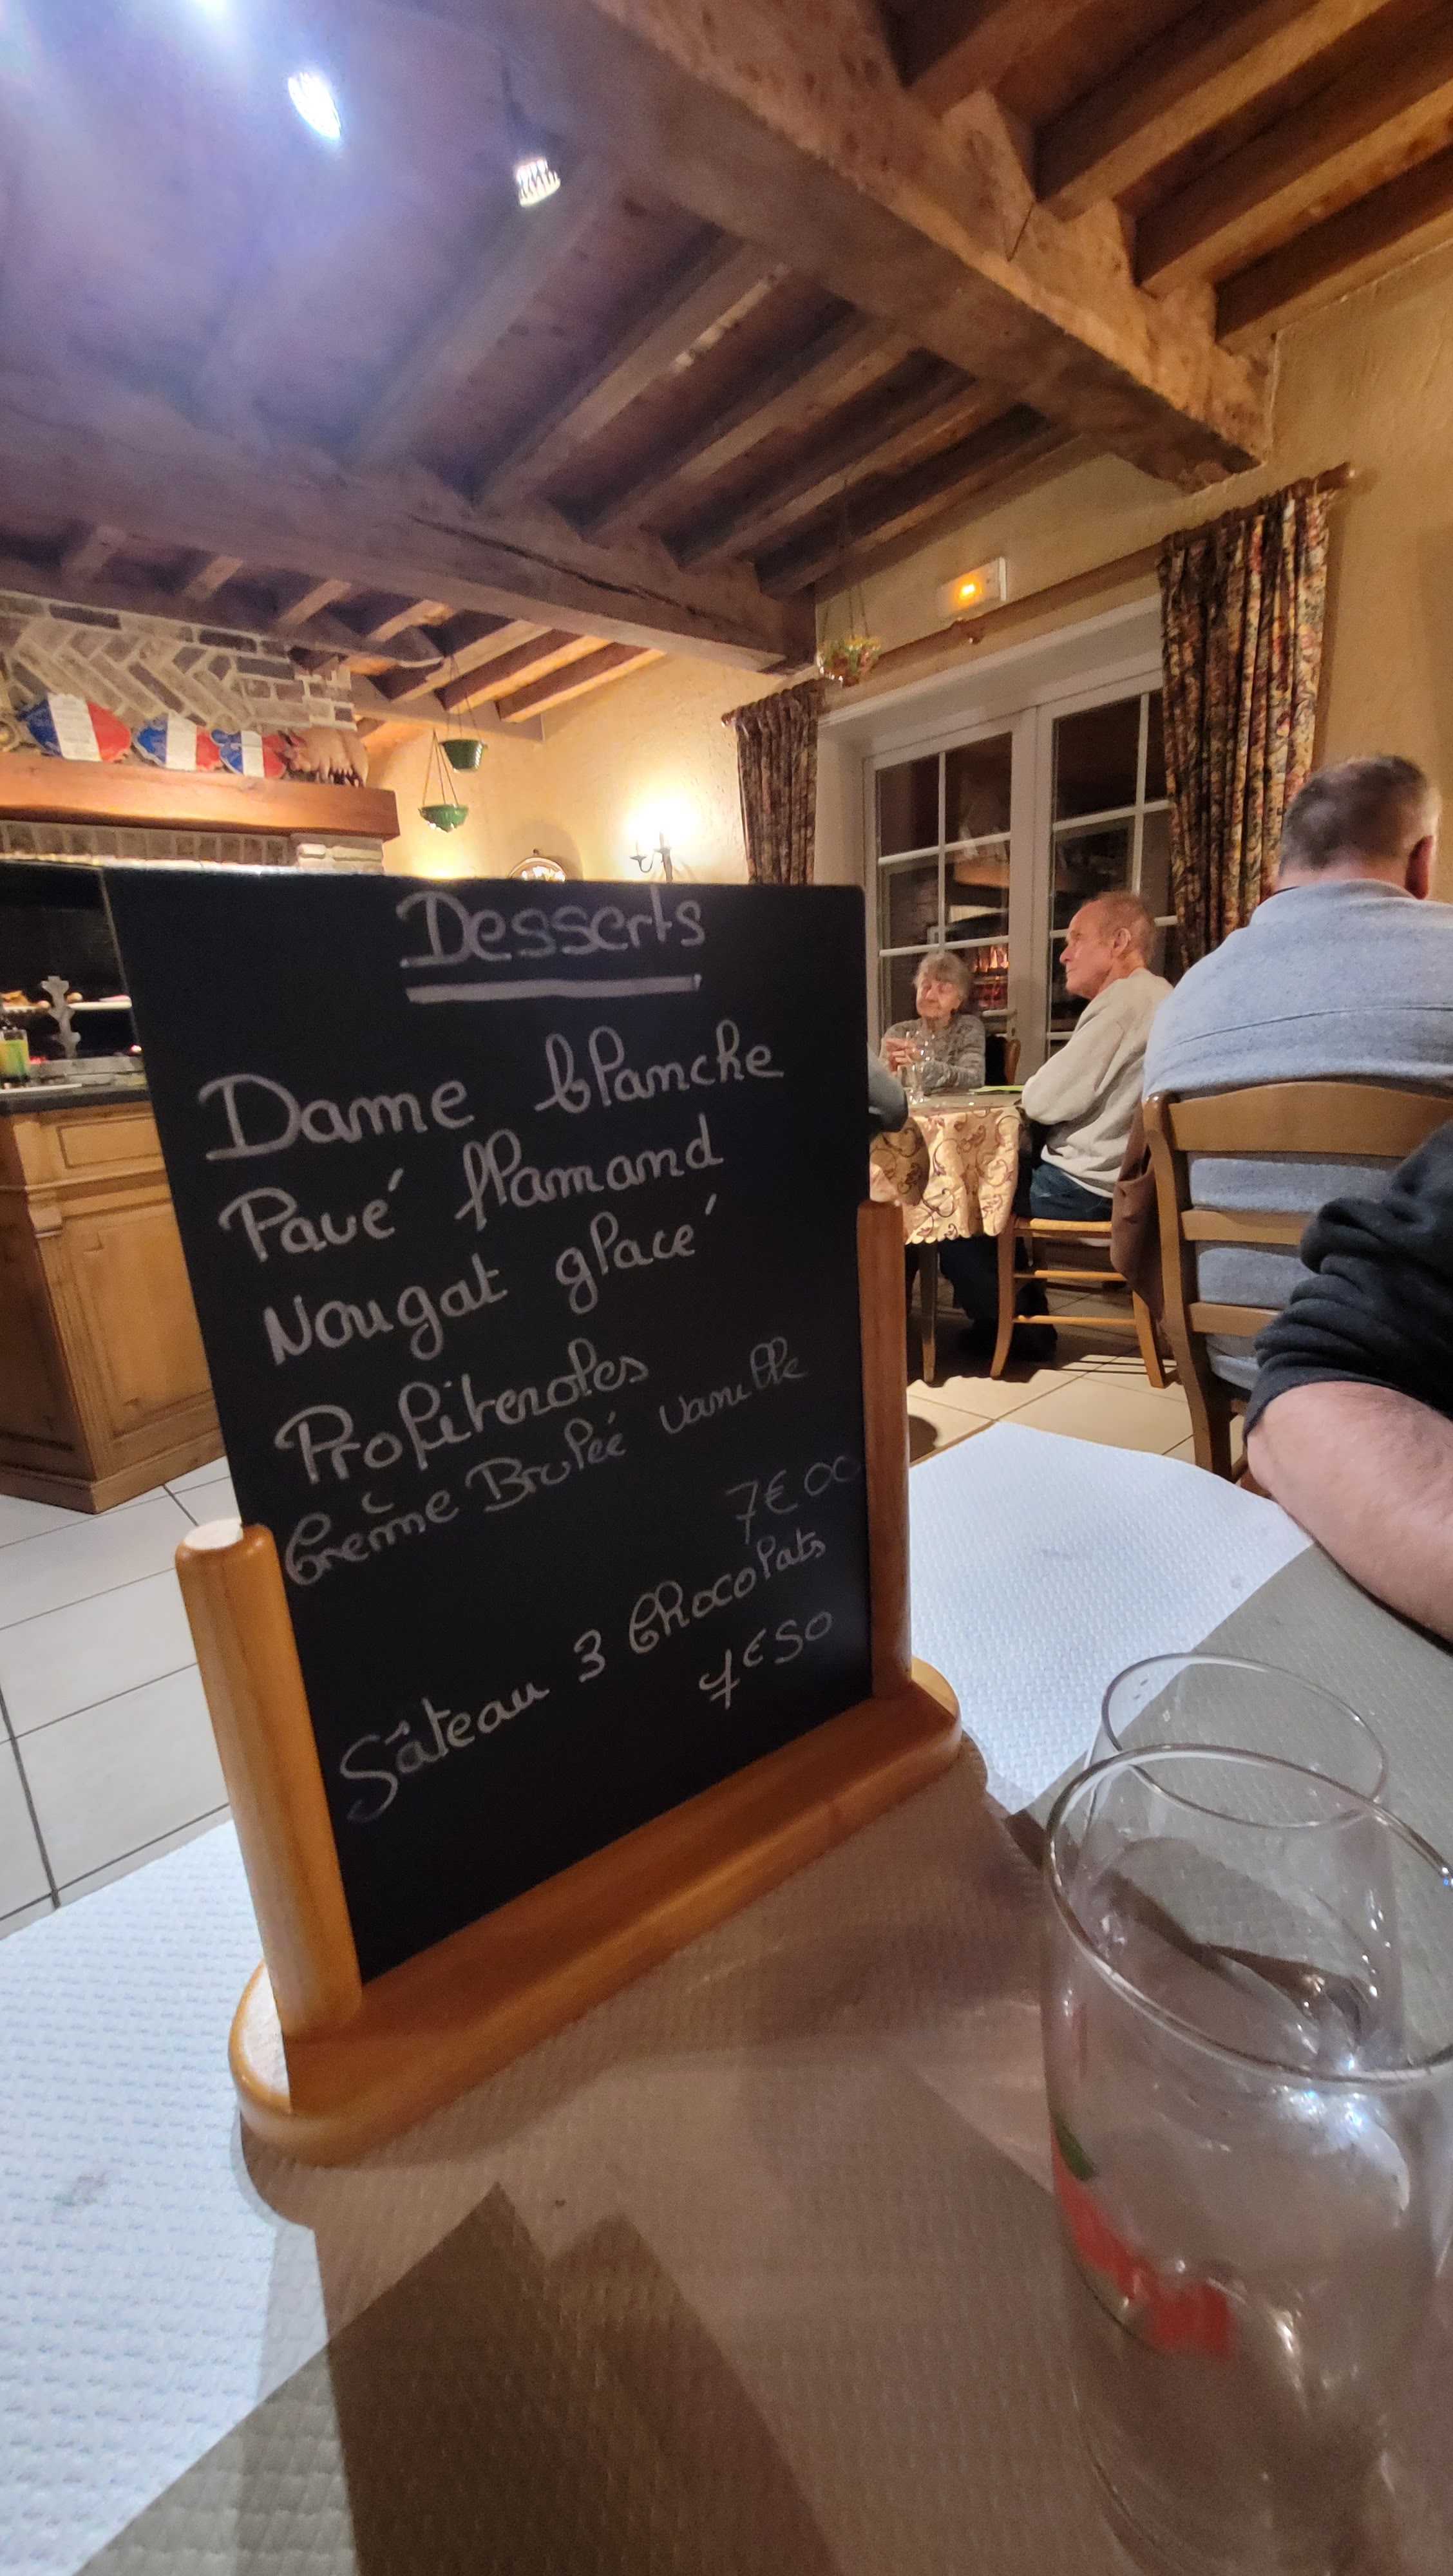 Desserts
Dame blanche
Pavé flamand
Nougat glacé
Profiteroles
Crème Brulée vanille
7€00
Gâteau 3 Chocolats
7€50